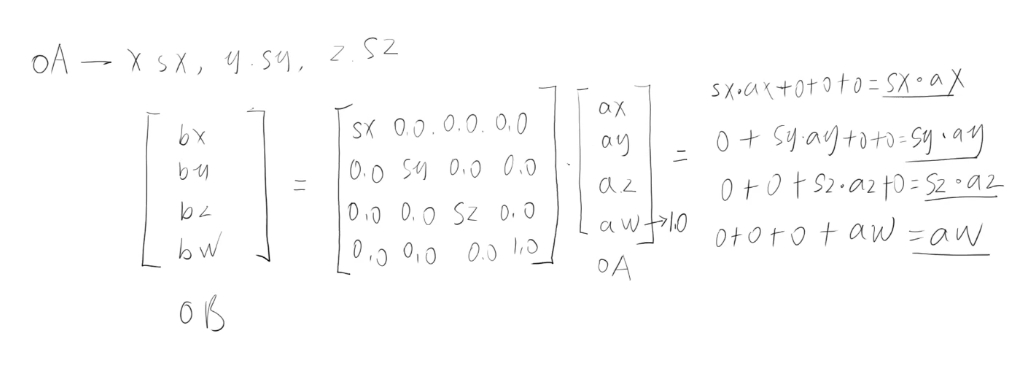 OA → x sx, y.sy, z.sz
[bx by bz bw] = [sx 0.0. 0.0. 0,0
0.0 sy 0,0 0.0
0,0 0.0 sz 0,0
0,0 0,0 0.0 1,0] · [ax ay az aw→1.0] =
sx·ax+0+0+0=sx·ax
0+sy·ay+0+0=sy·ay
0+0+sz·az+0=sz·az
0+0+0+aw=aw
OB
OA